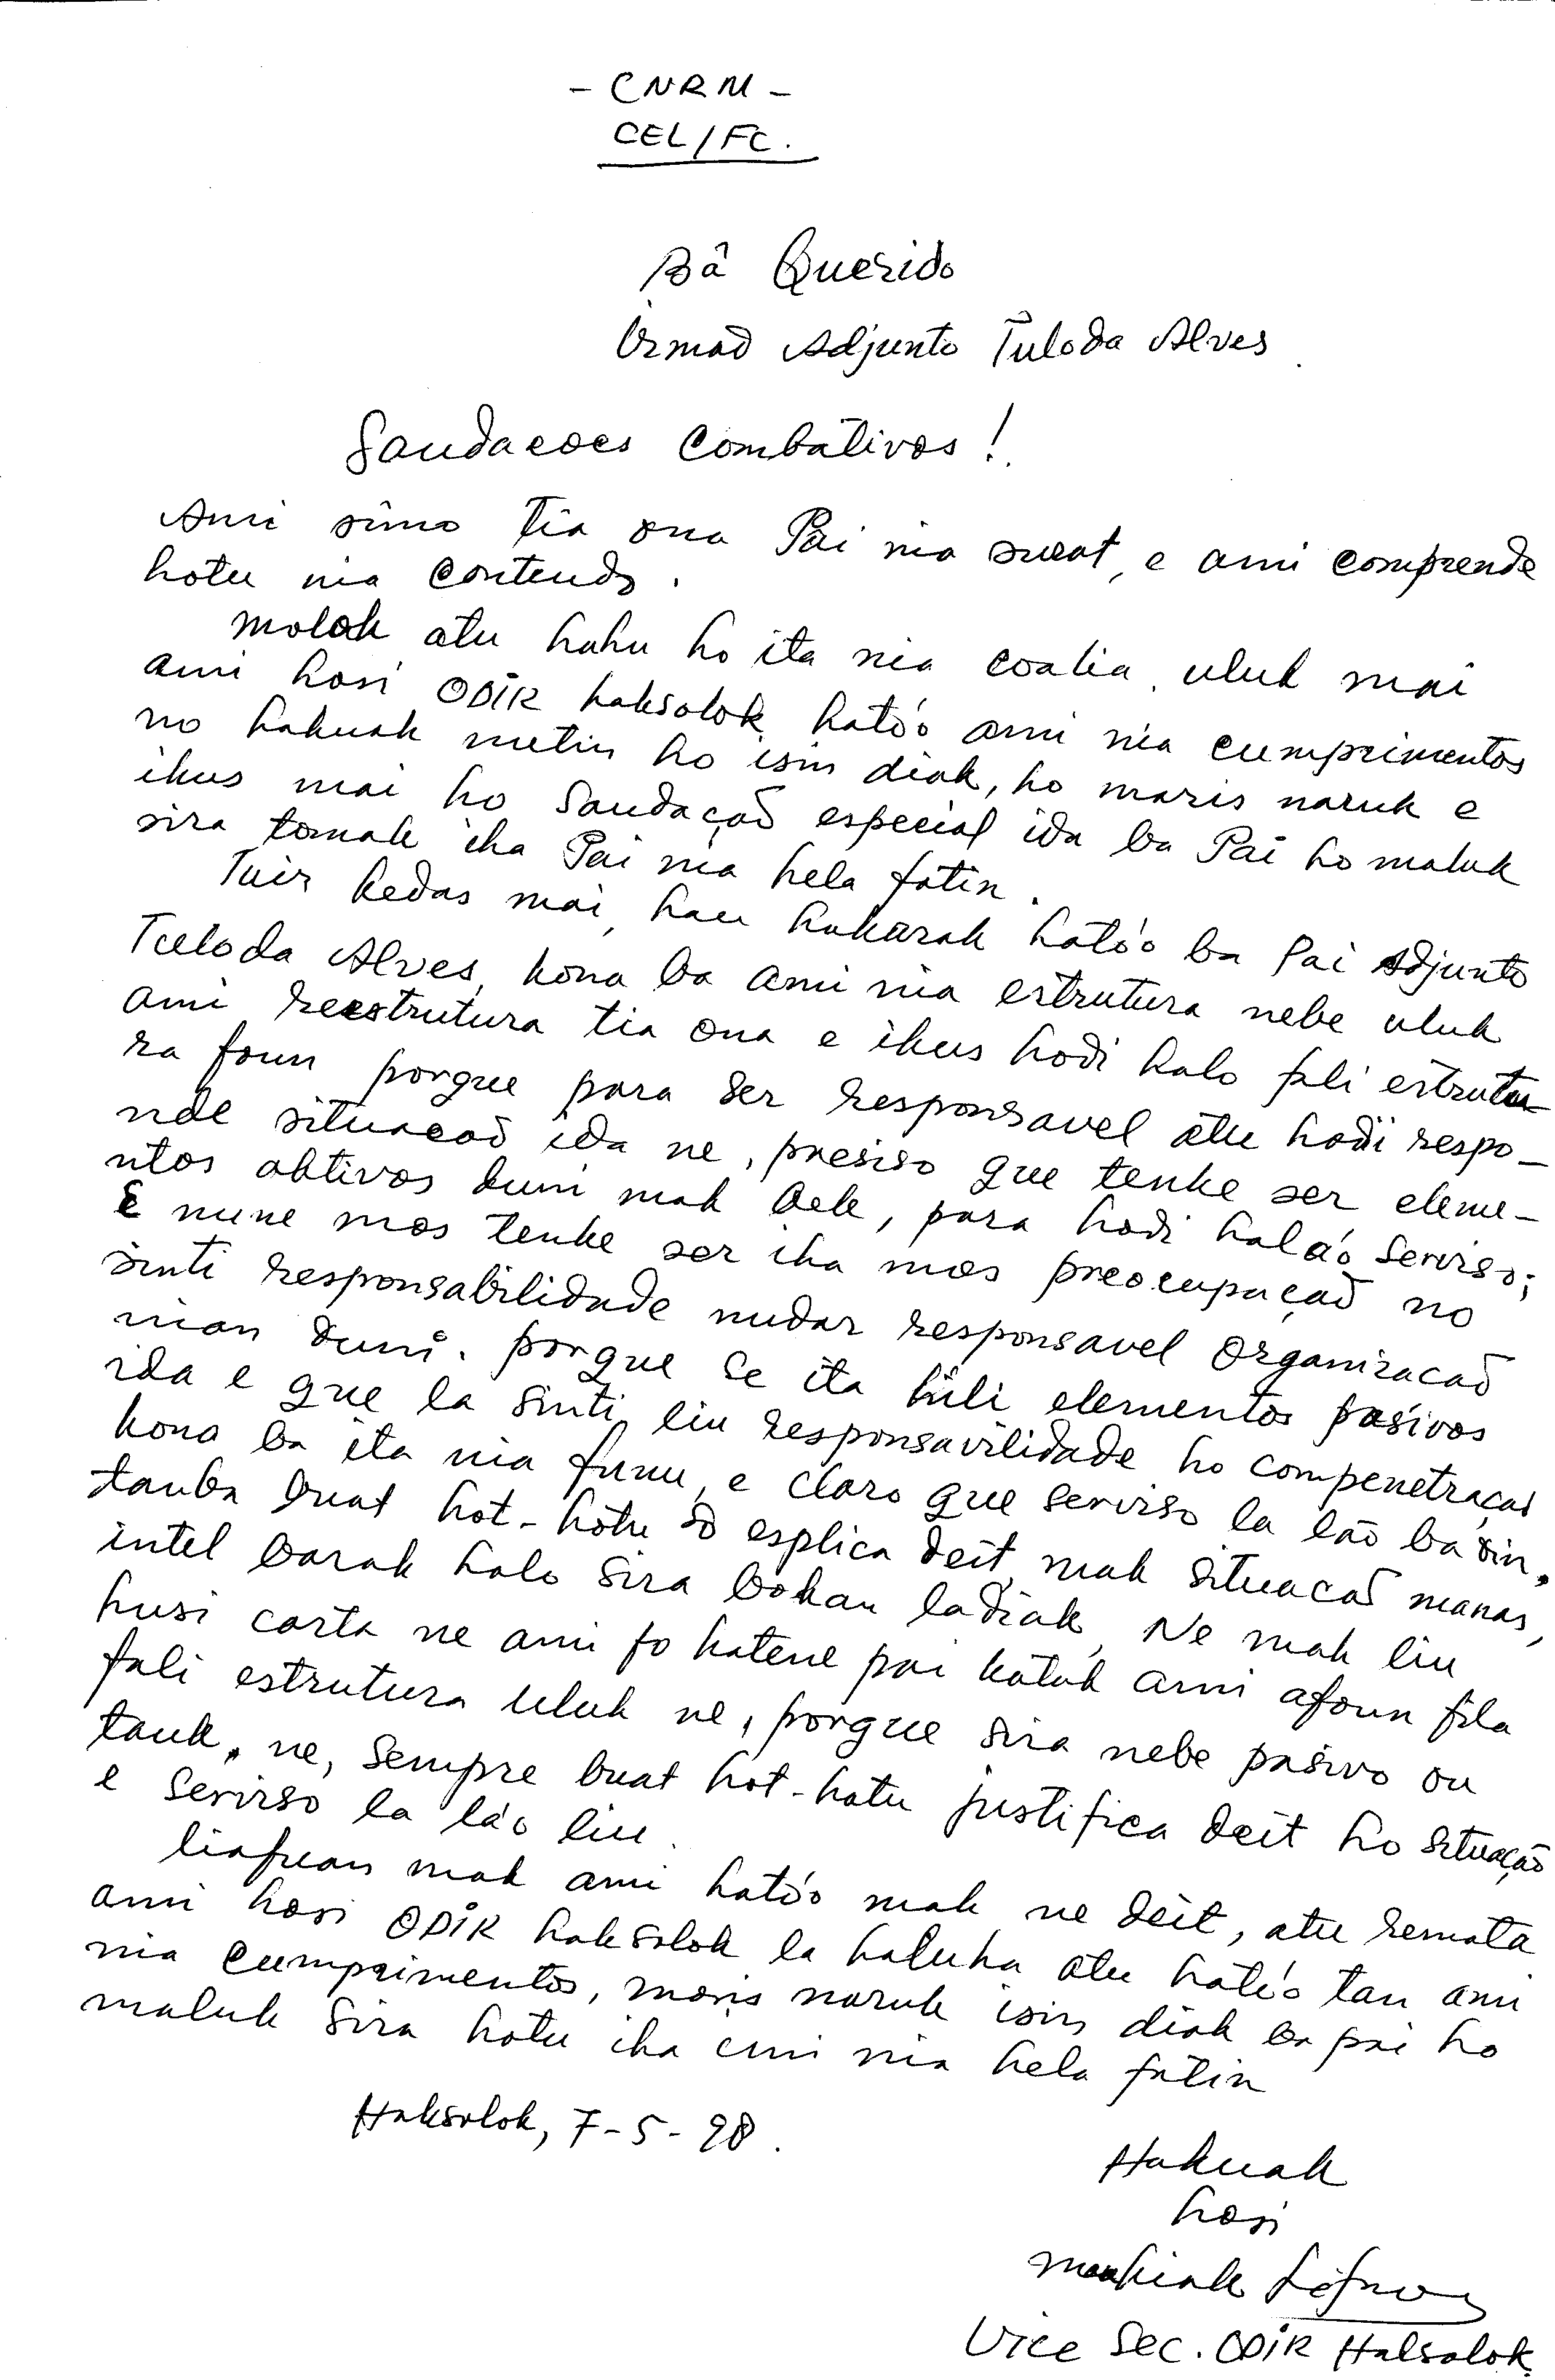 - CNRM -
CEL/FC.
Bâ Querido
Irmaõ Adjunto Tuloda Alves
Saudacoes Combativos!
Ami simo tia ona Pai nia surat, e ami comprende
hotu nia contendo.
molok atu hahu ho ita nia coalia, uluk mai
ami hosi ODIR haksolok ható'o ami nia cumprimentos
no hakuak metin ho isin diak, ho maris naruk e
ikus mai ho Saudaçaõ especial ida ba Pai ho maluk
sira tomak iha Pai nia hela fatin.
Tuir kedas mai, hau hakarak ható'o ba Pai Adjunto
Tuloda Alves, kona ba ami nia estrutura nebe uluk
ami reestrutura tia ona e ikus hodi halo fali estrutu-
ra foun porque para ser responsavel atu hodi respo-
nde situacaõ ida ne, presiso que tenke ser eleme-
ntos aktivos duni mak bele, para hodi halá'o servirso;
E nune mos tenke ser iha mos preocupaçaõ no
sinti responsabilidade nudar responsavel organizacaõ
nian duni. porque se ita hili elementos pasivos
ida e que la sinti liu responsavilidade ho compenetraçaõ
kona ba ita nia funu, e claro que servirso la lão ba oin,
tanba buat hot-hotu só esplica deit, mak situacaõ manas,
intel barak halo sira bokan ladiak, Ne mak liu
husi carta ne ami fo hatene pai katak ami afoun fila
fali estrutura uluk ne, porque sira nebe pasivo ou
tauk, ne, sempre buat hot-hotu justifica deit ho situação
e servirso la lá'o liu.
liafuan mak ami ható'o mak ne deit, atu remata
ami hosi ODIR haksolok la haluha atu ható'o tan ami
nia cumprimentos, moris naruk isin diak ba pai ho
maluk sira hotu iha imi nia hela fatin
Haksolok, 7-5-98.
Hakuak
hosi
Vice Sec. ODIR Halsolok.